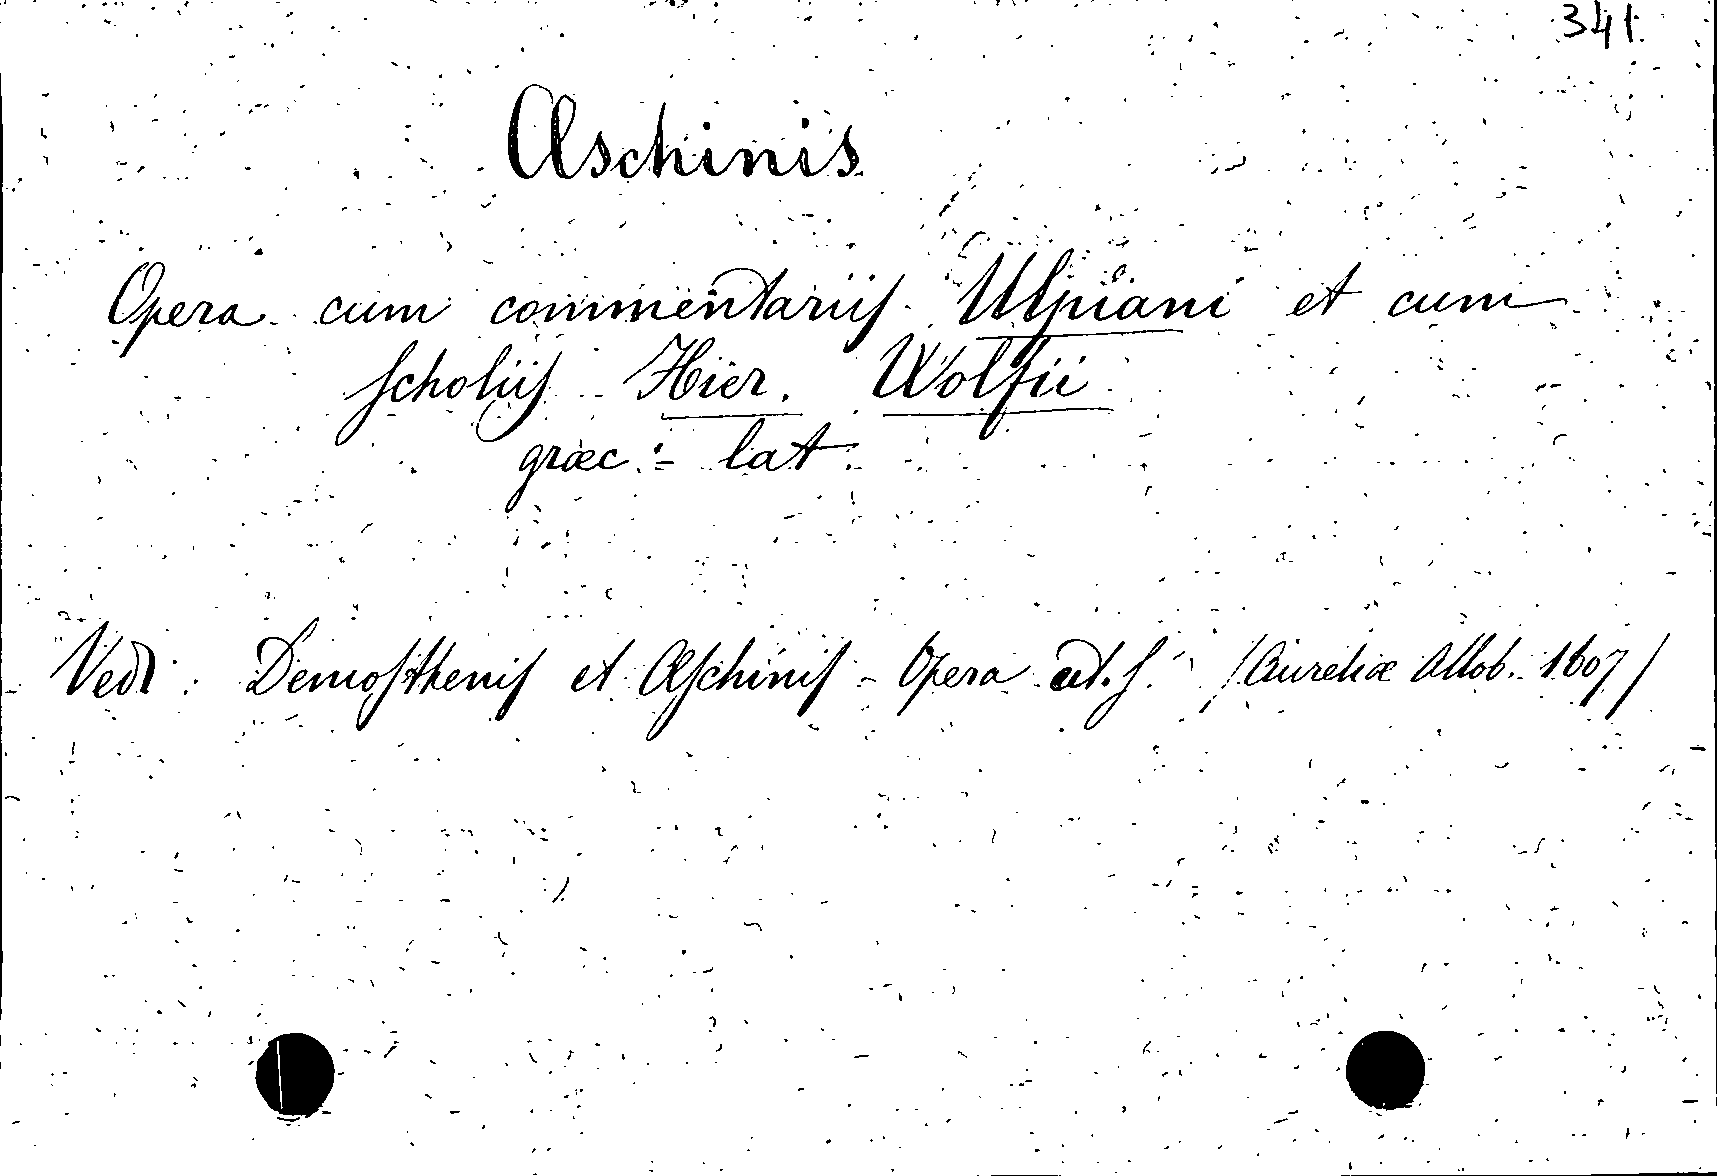 341
Æschinis
Opera cum commentariis Ulpiani et cum
scholiis Hier. Wolfii
græc: - lat.
Vedi: Demosthenis et Æschinis - Opera
(Aureliæ Allob. 1607)